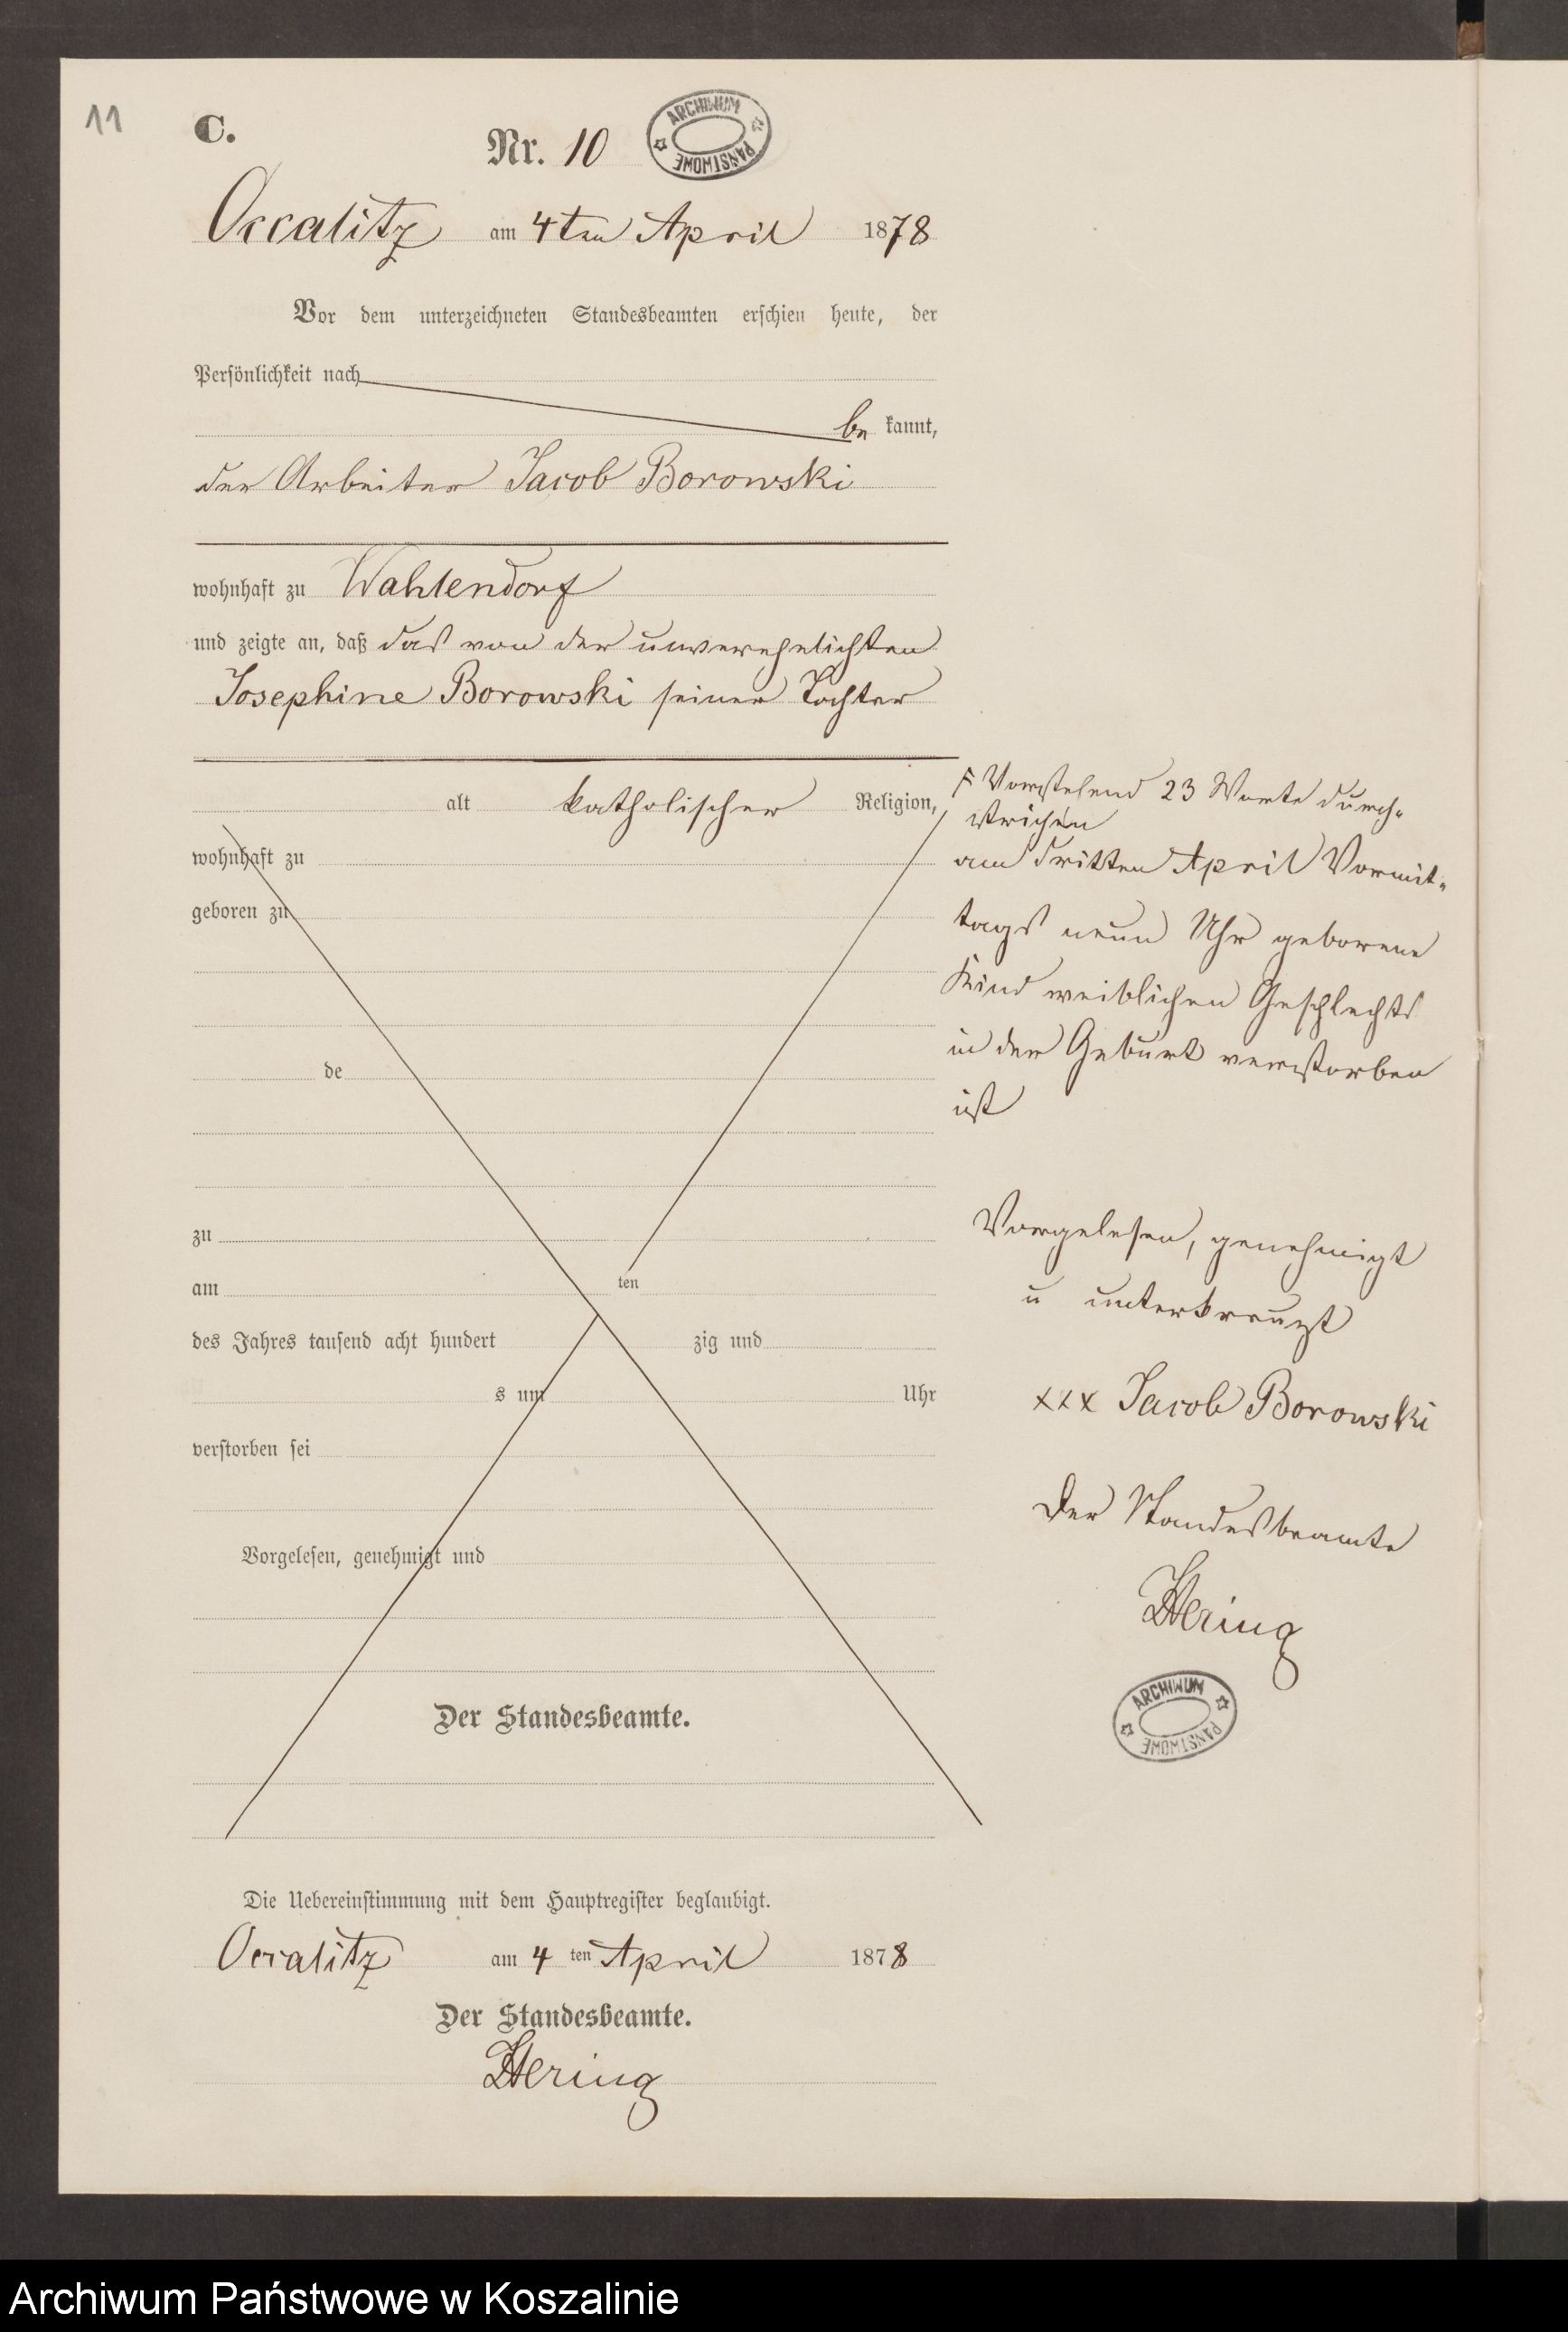 11
C.
Nr. 10
ARCHIWUM PAŃSTWOWE
Occalitz am 4ten April 1878
Vor dem unterzeichneten Standesbeamten erschien heute, der
Persönlichkeit nach
be kannt,
der Arbeiter Jacob Borowski
wohnhaft zu Wahlendorf
und zeigte an, daß das von der unverehelichten
Josephine Borowski seiner Tochter
alt katholischer Religion,
wohnhaft zu
geboren zu
de
zu
am ten
des Jahres tausend acht hundert zig und
s um Uhr
verstorben sei
Vorgelesen, genehmigt und
Der Standesbeamte.
Vorstehend 23 Worte durch-
strichen
am dritten April Vormit-
tags neun Uhr geborene
Kind weiblichen Geschlechts
in der Geburt verstorben
ist
Vorgelesen, genehmigt
u unterkreuzt
xxx Jacob Borowski
Der Standesbeamte
Hering
ARCHIWUM PAŃSTWOWE
Die Uebereinstimmung mit dem Hauptregister beglaubigt.
Occalitz am 4 ten April 1878
Der Standesbeamte.
Hering
Archiwum Państwowe w Koszalinie